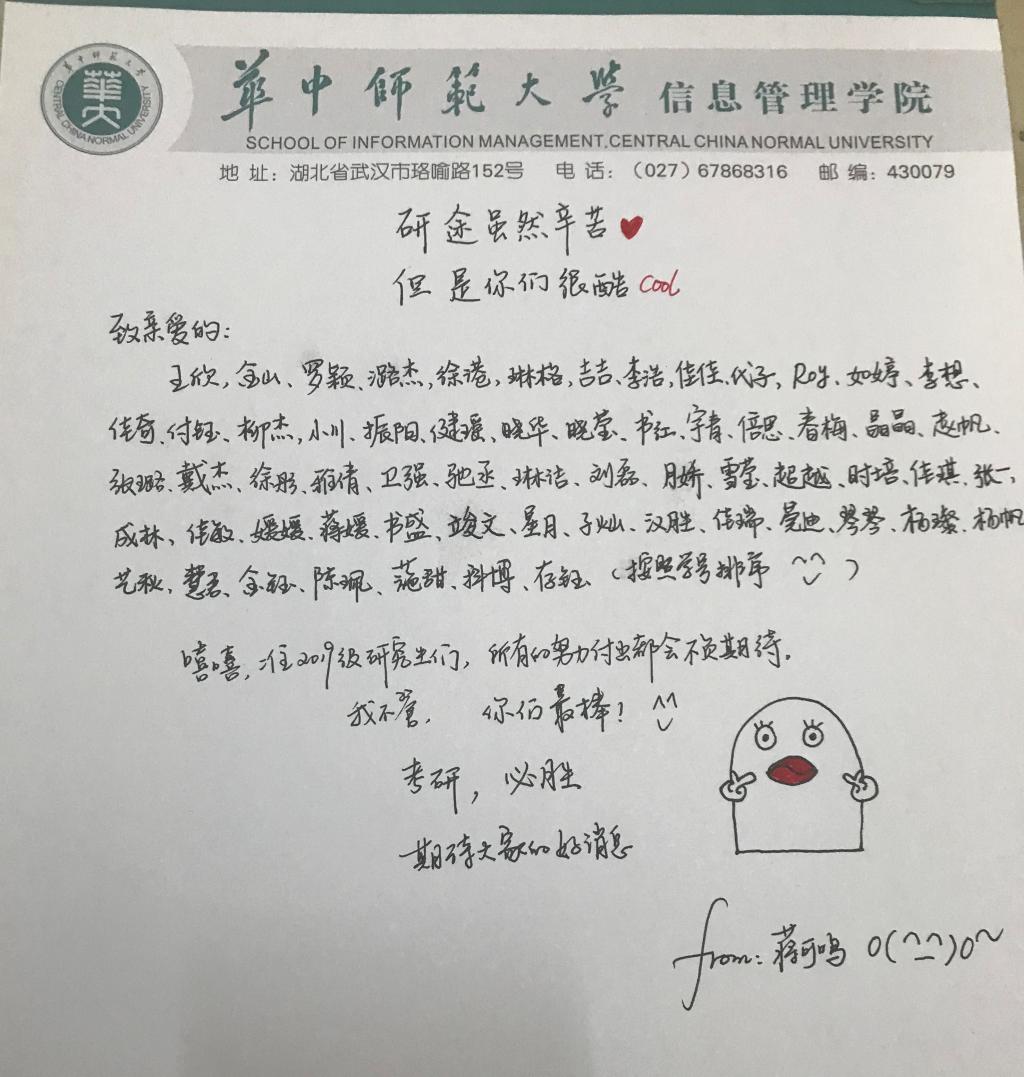 華中師範大學
CENTRAL CHINA NORMAL UNIVERSITY
華中師範大學 信息管理学院
SCHOOL OF INFORMATION MANAGEMENT.CENTRAL CHINA NORMAL UNIVERSITY
地 址：湖北省武汉市珞喻路152号 电 话：（027）67868316 邮 编：430079
研途虽然辛苦
但是你们很酷 cool
致亲爱的：
王欣，金山、罗颖、潞杰，徐港，琳格，吉吉、李浩，佳佳、代子，Roy、如婷、李想、
佳奇、付钰、柳杰，小川、振阳、健瑗、晓华、晓莹、书红、宇青、倍思、春梅、晶晶、赵帆、
张璐、戴杰、徐彤、雅倩、卫强、驰丞、琳洁、刘磊、月娇、雪莹、超越、时培、佳琪、张一，
成林、佳敏、媛媛、蒋媛、书盛、竣文、星月、子灿、汉胜、佳瑞、曼迪、琴琴、杨璨、杨帆
艺秋，慧君、金钰、陈珮、范甜、科博、存钰（按照学号排序 ^^）
嘻嘻，准2019级研究生们，所有的努力付出都会不负期待。
我不管， 你们最棒！^^
考研，必胜
期待大家的好消息
from：蒋可鸣 O(^_^)O~